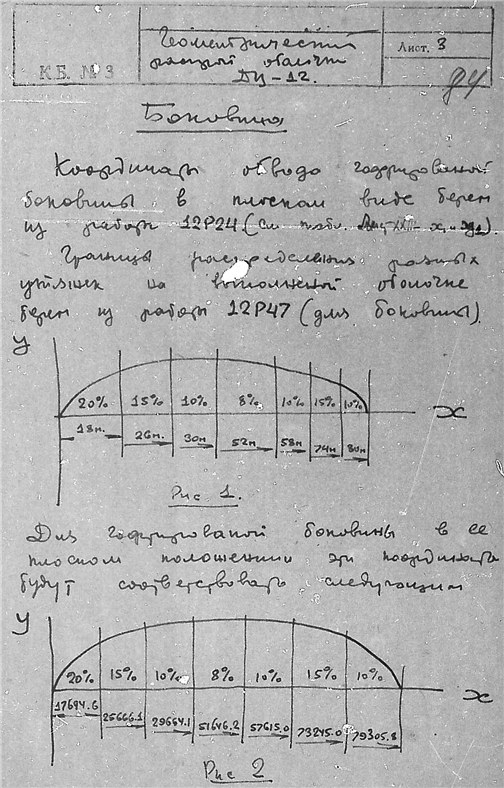 К.Б. № 3
Геометрический
раскрой оболочки
ДЦ-12.
Лист. 3
94
Боковина
Координаты обвода гофрированой
боковины в плоском виде берем
из работы 12Р24 (См. табл.
Границы распределения разных
утяжек на выполненной оболочке
берем из работы 12Р47 (для боковины).
y
20% 15% 10% 8% 10% 15% 10%
x
18м. 26м. 30м 52м 58м 74м 80м
Рис 1.
Для гофрированой боковины в ее
плоском положении эти координаты
будут соответствовать следующим
y
20% 15% 10% 8% 10% 15% 10%
x
17694.6 25666.1 29664.1 51646.2 57615.0 73245.0 79305.8
Рис 2